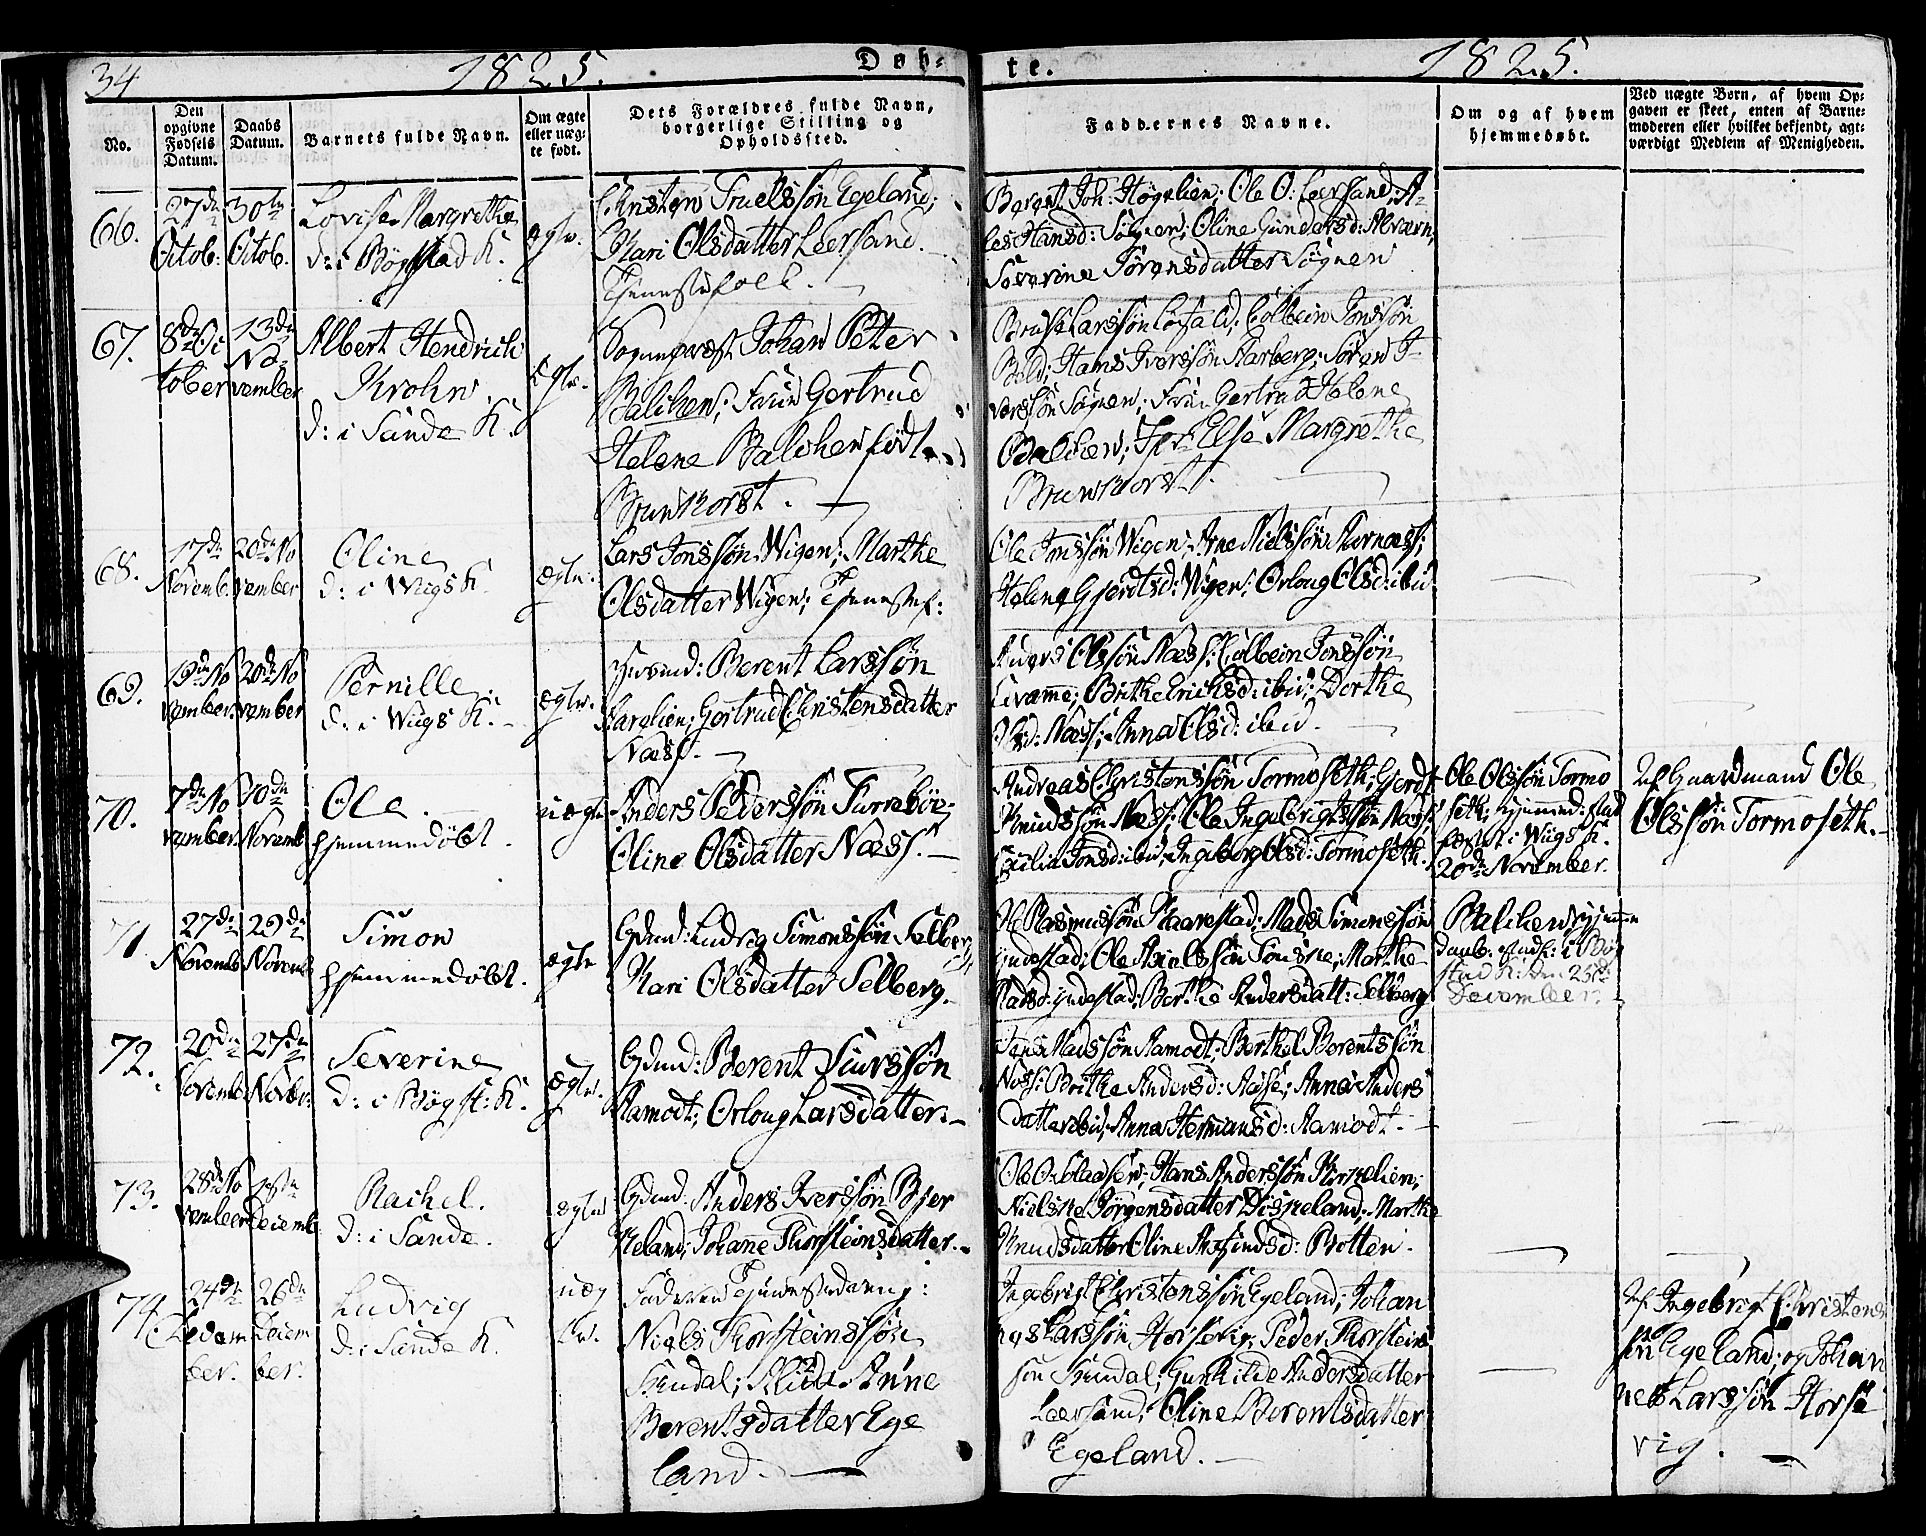 34
1825.
Døb-
te.
1825.
No.
Den opgivne Fødsels Datum.
Daabs Datum.
Barnets fulde Navn.
Om ægte eller uægte født.
Dets Forældres fulde Navn, borgerlige Stilling og Opholdssted.
Faddernes Navne.
Om og af hvem hjemmedøbt.
Ved uægte Børn, af hvem Opgaven er skeet, enten af Barnemoderen eller hvilket bekjendt, agtværdigt Medlem af Menigheden.
66.
27de Octob:
30te Octob.
Lovise Margrethe
d: i Bøgstad K.
ægte.
Christen Truelssøn Egeland;
Kari Olsdatter Leersand.
Tjenestefolk.
Berent Joh: Høgelien; Ole O: Leersand; A-
les Hansd: Søgnen; Oline Gundersd: Alværn;
Severine Sørensdatter Søgnen
67.
8de October
13de November
Albert Hendrich
Krohn.
d: i Sande K.
Ægte.
Sogneprest Johan Peter
Balchen; Frue Gertrud
Helene Balchen født
Brunkorst.
Colbein Jonssøn
Hans Iverssøn Aarberg; Søren I-
verssøn Søgnen; Frue Gertrud Helene
Balchen; Else Margrethe
Brunkorst.
68.
17de Novemb.
20de November
Oline
d: i Wiigs K.
ægte.
Lars Jonssøn Wigen; Marthe
Olsdatter Wigen; Tjenestef:
Ole Jonssøn Wigen; Arne Nielssøn
Helene Gjerdtsd: Wigen; Orloug Olsd: ibid.
69.
19de November
20de November
Pernille.
d: i Wiigs K.
ægte.
Berent Larssøn
Gertrud Christensdatter
Næss.
Anders Olssøn Næss; Colbein Jonssøn
Brithe Erichsd: ibid; Dorthe
Olsd: Næss; Anna Olsd: ibid.
70.
7de November
30de Novemb
Ole.
hjemmedøbt.
uægte
Anders Pederssøn Furrebøe;
Oline Olsdatter Næss.
Andreas Christenssøn Tormoseth; Gjerdt
Knudssøn Næss; Ole Ingebrigtssøn Næss;
Jonsd: ibid; Ingeborg Olsd: Tormoseth.
Ole Olssøn Tormo
seth;
fæstet i Wiigs K.
20de November.
Af Gaardmand Ole
Olssøn Tormoseth.
71.
27de Novemb
29de Novemb
Simon
hjemmedøbt.
ægte
Gdmd: Ludvig Simonssøn Selberg
Kari Olsdatter Selberg.
Rasmussøn Mads Simonssøn
Yndestad; Ole Marthe
Madsd: Yndestad; Berthe Andersdatt: Selberg
Balchen; hjemme
daab: i Bøg
stad K:
December.
72.
20de Novemb
27de Novbr:
Severine
d: i Bøgst: K.
ægte.
Gdmd: Berent Siurssøn
Aamodt; Orloug Larsdatter.
Jens Madssøn Aamodt; Berthel Berentssøn
Næss; Brithe Andersd: Aase; Anna Anders
datter ibid; Anna Hermansd: Aamodt.
73.
28de November
1ste Decemb
Rachel.
d: i Sande.
ægte
Gdmd. Anders Iverssøn Bjer
keland; Johanne Thorsteinsdatter.
Ole O: Claasen; Hans Anderssøn
Jørgensdatter Diskeland; Marthe
Knudsdatter; Oline Botten.
74.
24de Decem
ber.
26de Decem
ber.
Ludvig
d: i Sande K.
uæg
te.
Faderen Tjenestedreng:
Niels Thorsteinssøn
Anne
Berentsdatter Ege
land.
Ingebrigt Christenssøn Egeland; Johan
nes Larssøn Horsevig; Peder Thorsteins
søn Gunhilde Andersdatter
Leersand; Oline Berentsdatter
Egeland.
Af Ingebrigt Christens
søn Egeland; og Johan
nes Larssøn Horse
vig.